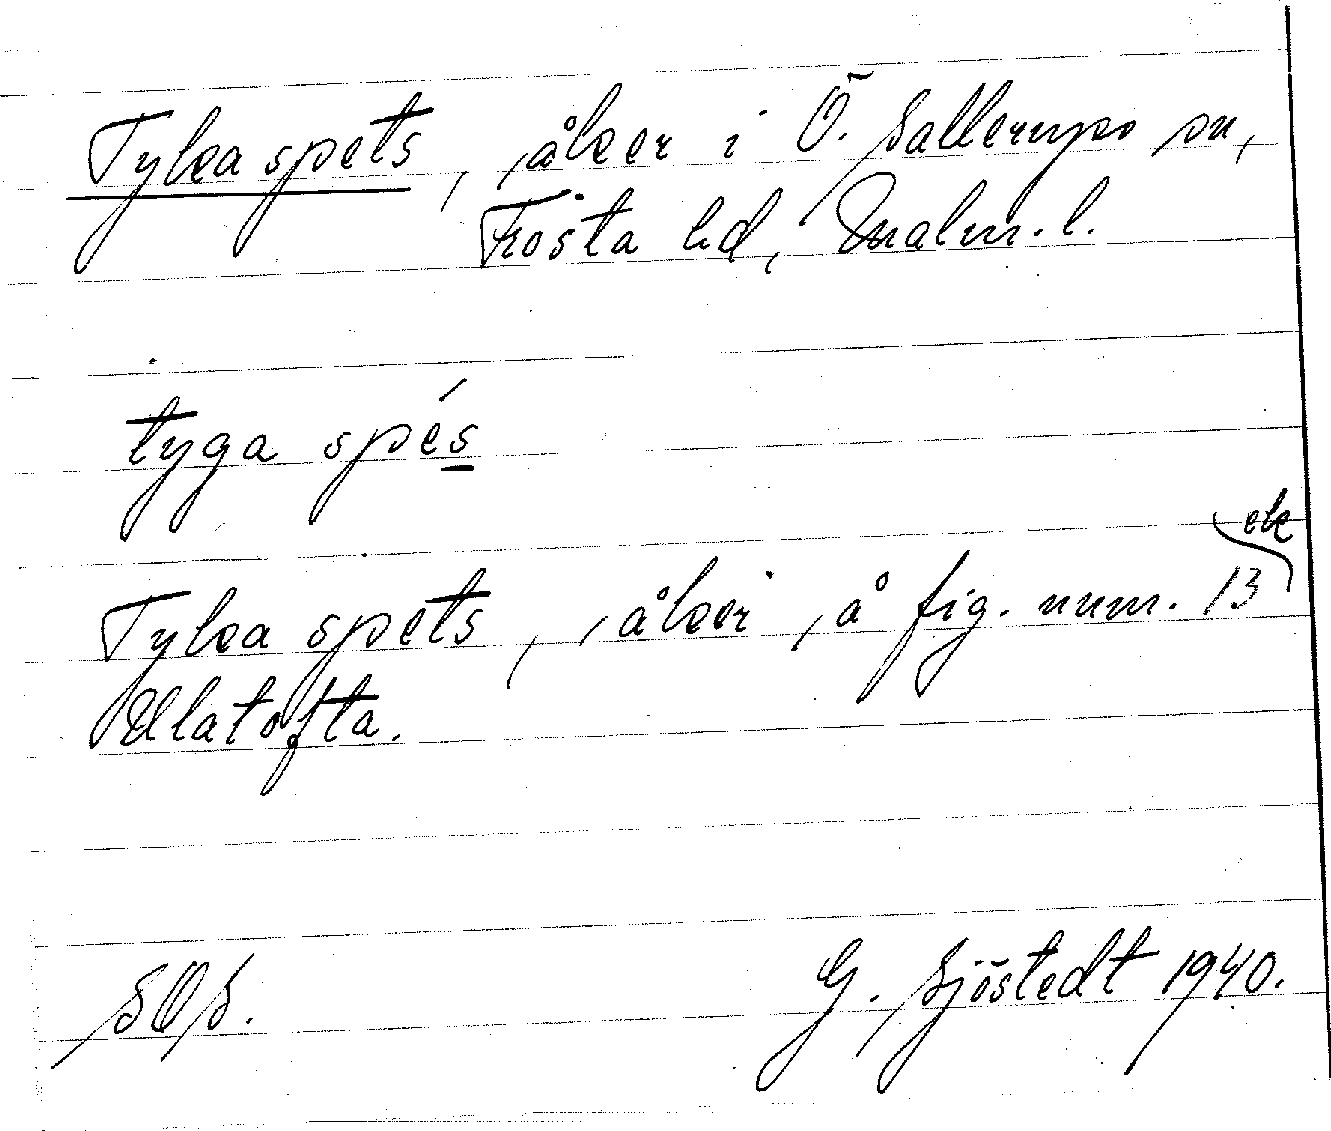 Tyka spets, åker i Ö. Sallerups sn,
Frosta hd, Malm. l.
tyga spés
ek
Tyka spets, åker, å fig. num. 13
Ulatofta.
SOS.
G. Sjöstedt 1940.